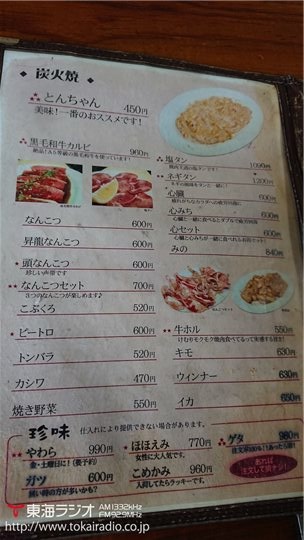 炭火焼
★★とんちゃん 450円
美味!一番のおススメです!
黒毛和牛カルビ 960円
絶品!A5等級の黒毛和牛を使っています!
塩タン 1090円
ネギタン 1200円
ネギの風味をタンと一緒に!
心臓 600円
心みち 600円
心セット 600円
みの 840円
なんこつ 600円
昇龍なんこつ 600円
頭なんこつ 600円
珍しい声帯です
★★なんこつセット 700円
3つのなんこつが楽しめます♪
こぶくろ 520円
★ピートロ 600円
トンバラ 520円
カシワ 470円
焼き野菜 550円
★★牛ホル 550円
けむりモクモク焼肉食べてるって実感する技!
キモ 630円
ウィンナー 630円
イカ 650円
珍味 仕入れにより提供できない場合があります。
★やわら 990円
金・土曜日に!(要予約)
ガツ 560円
ほほえみ 770円
女性に大人気です。
こめかみ 960円
入荷してたらラッキーです。
ゲタ 980円
あれば注文して損ナシ!
東海ラジオ AM1332kHz FM92.9MHz
http://www.tokairadio.co.jp